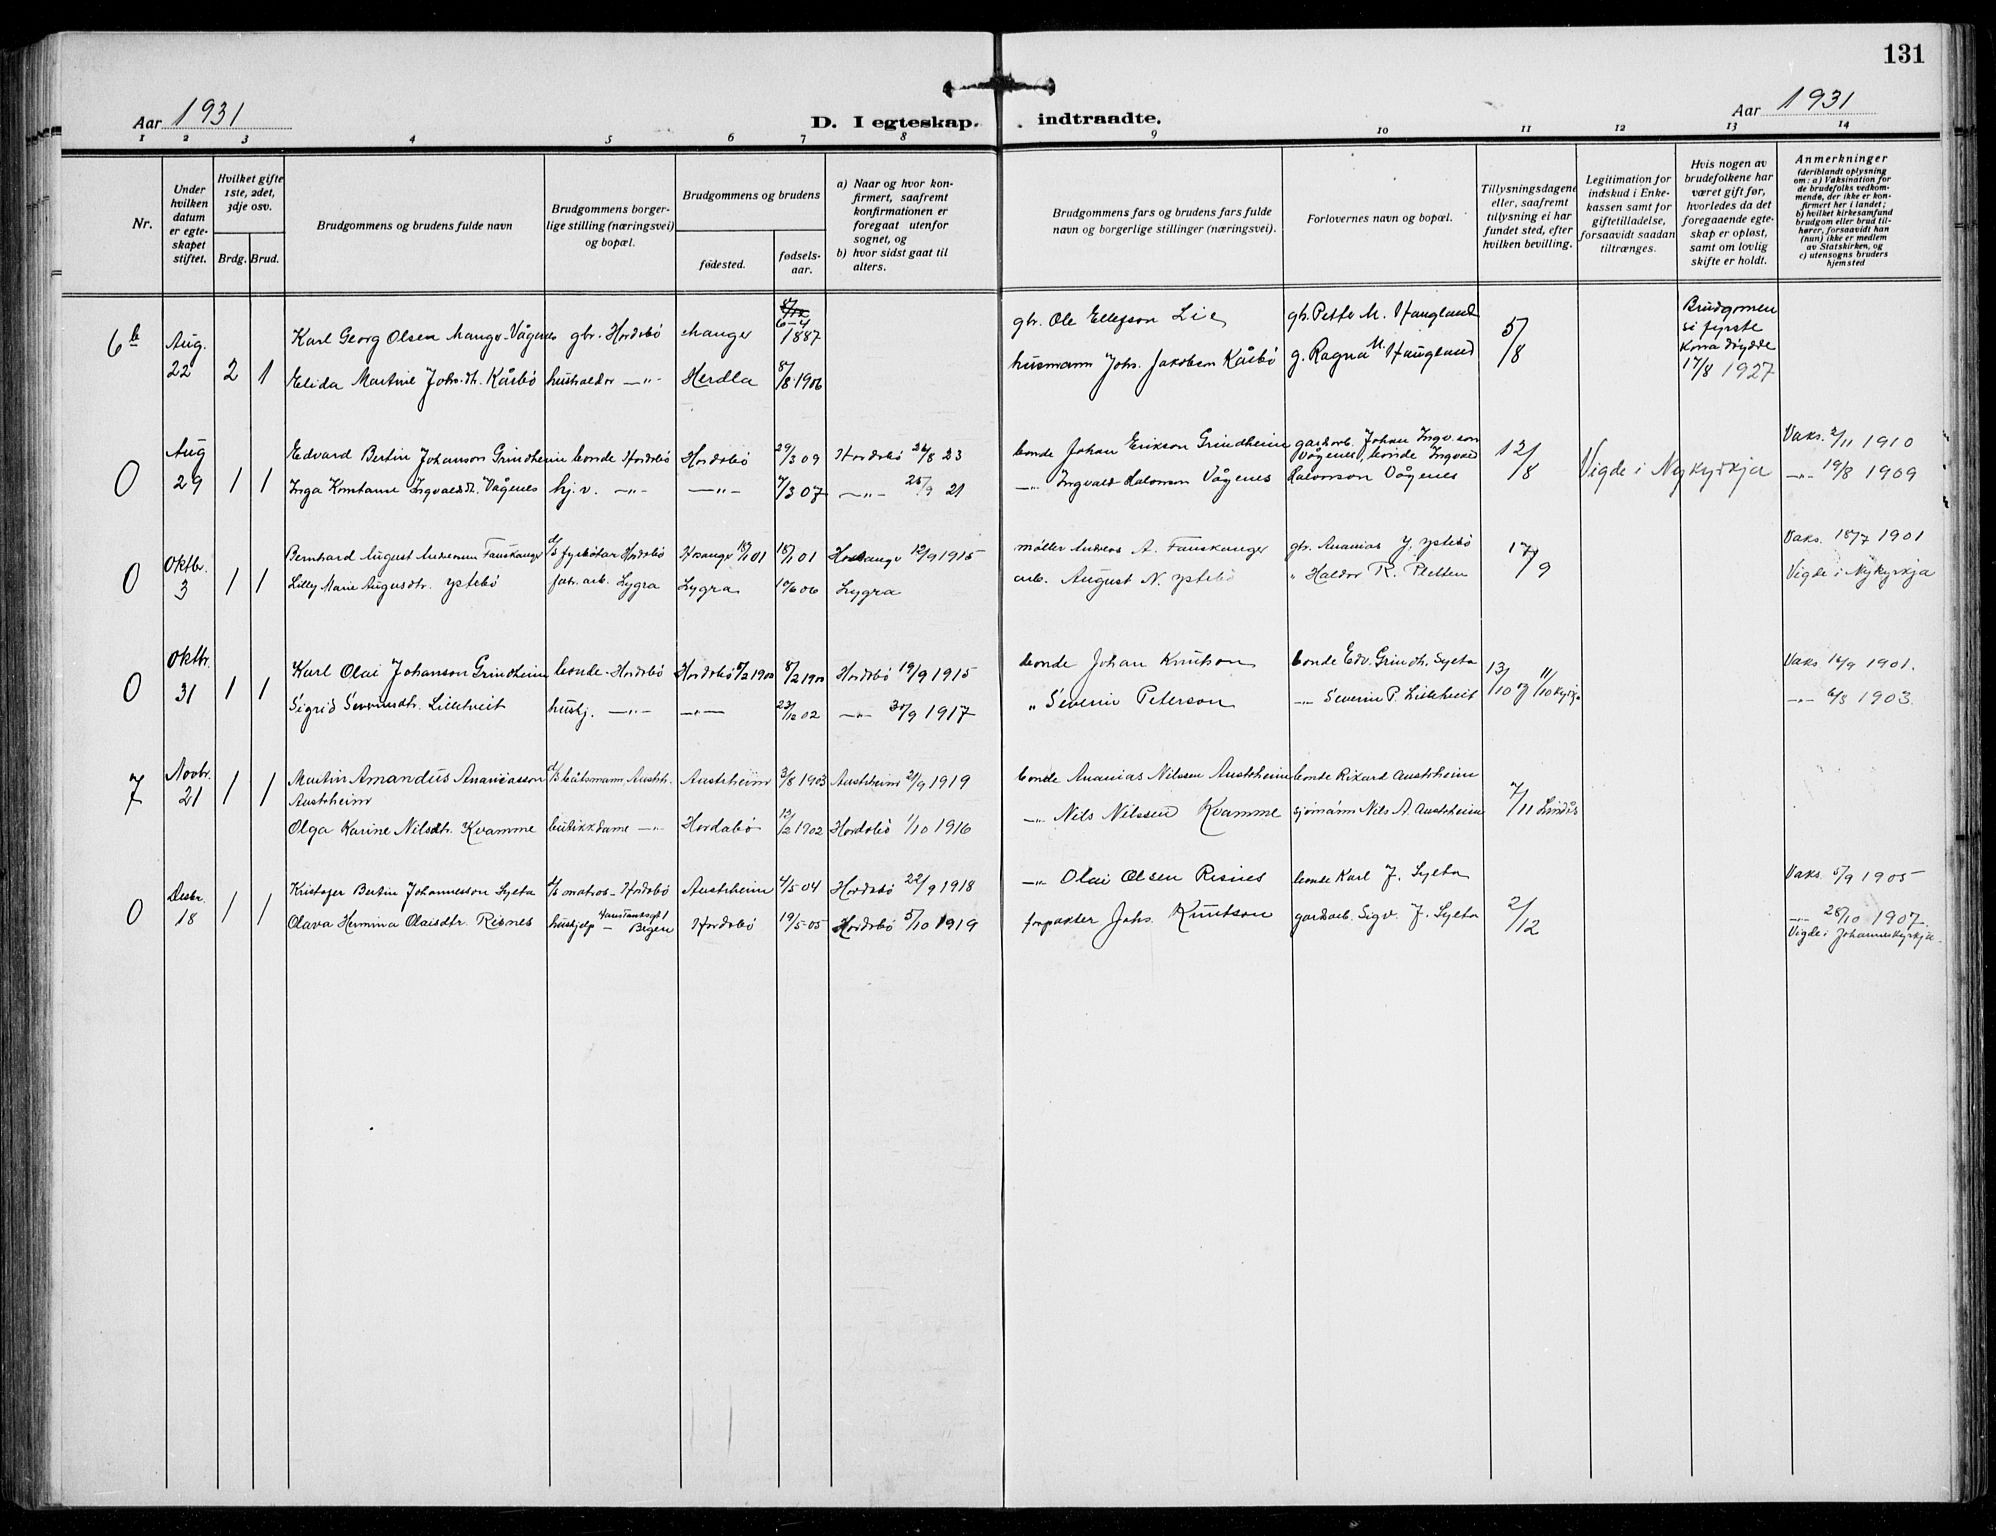 131
Aar 1931
D. I egteskap indtraadte.
Aar 1931
1 2 3 4 5 6 7 8 9 10 11 12 13 14
Nr.
Under hvilken datum er egteskapet stiftet.
Hvilket gifte 1ste, 2det, 3dje osv.
Brdg. Brud.
Brudgommens og brudens fulde navn
Brudgommens borgerlige stilling (næringsvei) og bopæl.
Brudgommens og brudens
fødested.
fødselsaar.
a) Naar og hvor konfirmert, saafremt konfirmationen er foregaat utenfor sognet, og
b) hvor sidst gaat til alters.
Brudgommens fars og brudens fars fulde navn og borgerlige stillinger (næringsvei).
Forlovernes navn og bopæl.
Tillysningsdagene eller, saafremt tillysning ei har fundet sted, efter hvilken bevilling.
Legitimation for indskud i Enkekassen samt for giftetilladelse, forsaavidt saadan tiltrænges.
Hvis nogen av brudefolkene har været gift før, hvorledes da det foregaaende egteskap er opløst, samt om lovlig skifte er holdt.
Anmerkninger (deriblandt oplysning om: a) Vaksination for de brudefolks vedkommende, der ikke er konfirmert her i landet; b) hvilket kirkesamfund brudgom eller brud tilhører, forsaavidt han (hun) ikke er medlem av Statskirken, og c) utensogns bruders hjemsted
6b Aug. 22 2 1 Karl Georg Olsen Mange-Vågenes gbr. Hordabø Manger 6-4 1887 gbr. Ole Ellefson Lie gb. Petter M. Haugland 5/8 Brudgomen si fyrste kona døydde 17/8 1927
Elida Martine Johs.dt. Kårbø hushaldn. —"— Herdla 8/8-1906 husmann Johs. Jakobson Kårbø g. Ragna M. Haugland
0 Aug 29 1 1 Edvard Bertin Johanson Grindheim bonde Hordabø Hordabø 29/3 09 Hordabø 26/8 23 bonde Johan Erikson Grindheim gardarb. Johan Ingv.son Vågenes, bonde Ingvald Halvorson Vågenes 12/8 Vigde i Nykyrkja Vaks. 2/11 1910
Inga Konstanse Ingvaldsdt. Vågenes hj.v. —"— —"— 7/3 07 —"— 25/9 21 —"— Ingvald Halvorson Vågenes —"— 19/8 1909
0 Oktbr. 3 1 1 Bernhard August Andersen Fauskanger d/s fyrbøtar Hordabø Hosanger 18/1 01 18/1 01 Hosanger 12/9 1915 møller Andreas A. Fauskanger gb. Ananias J. Ystebø 17/9 Vaks. 18/7 1901
Lilly Marie Augustdtr. Ystebø fabr. arb. Lygra Lygra 10/6 06 Lygra arb. August N. Ystebø " Haldor R. Pletten Vigde i Nykyrkja
0 Oktbr. 31 1 1 Karl Olai Johanson Grindheim bonde - Hordabø Hordabø 8/2 1900 8/2 1900 Hordabø 19/9 1915 bonde Johan Knutson bonde Edv. Grindh. Sylta 13/10 og 11/10 kyrkja Vaks 16/9 1901.
Sigrid Severinsdtr. Litletveit hushj. —"— —"— 23/12 02 —"— 30/9 1917 " Severin Peterson —"— Severin P. Litletveit —"— 6/8 1903.
7 Novbr. 21 1 1 Martin Amandus Ananiasson Austrheim d/s båtsmann, Austrh. Austrheim 3/8 1903 Austrheim 21/9 1919 bonde Ananias Nilssen Austrheim bonde Rikard Austrheim 7/11 Lindås
Olga Karine Nilsdtr. Kvamme butikkdame —"— Hordabø 12/2 1902 Hordabø 1/10 1916 —"— Nils Nilssen Kvamme sjømann Nils A. Austrheim
0 Desbr. 18 1 1 Kristofer Bertin Johannesson Sylta d/s matros - Hordabø Austrheim 4/5-04 Hordabø 22/9 1918 —"— Olai Olsen Risnes bonde Karl J. Sylta 2/12 Vaks. 5/9 1905
Olava Hermina Olaisdtr. Risnes hushjelp - Bergen Hordabø 19/5-05 Hordabø 5/10 1919 forpakter Johs. Knutson gardarb. Sigv. J. Sylta —"— 28/10 1907.
Vigde i Johanneskyrkja.